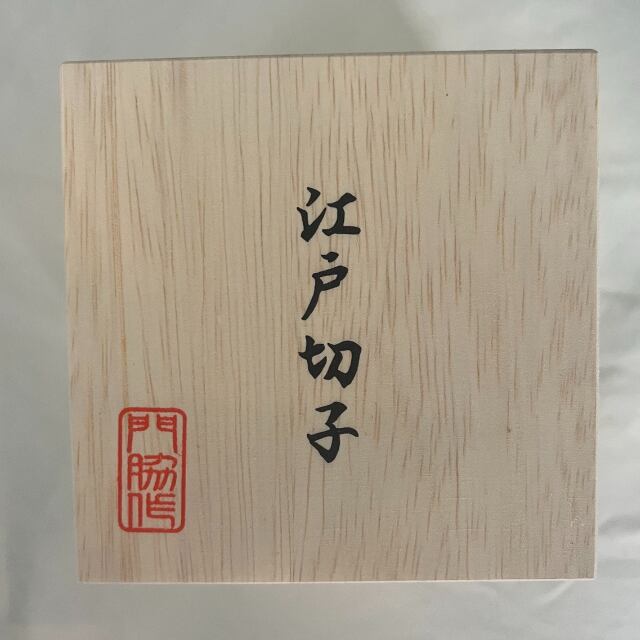 江戸切子
門脇作